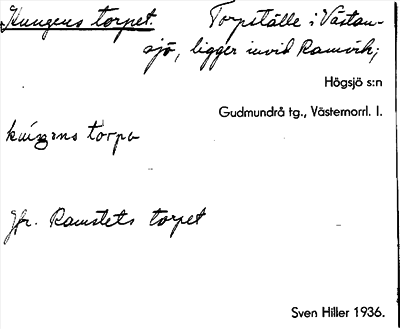 Kungens torpet. Torpställe i Västan-
sjö, ligger invid Ramvik;
Högsjö s:n
Gudmundrå tg., Västernorrl. l.
torpa
Jfr. Ramstets torpet
Sven Hiller 1936.